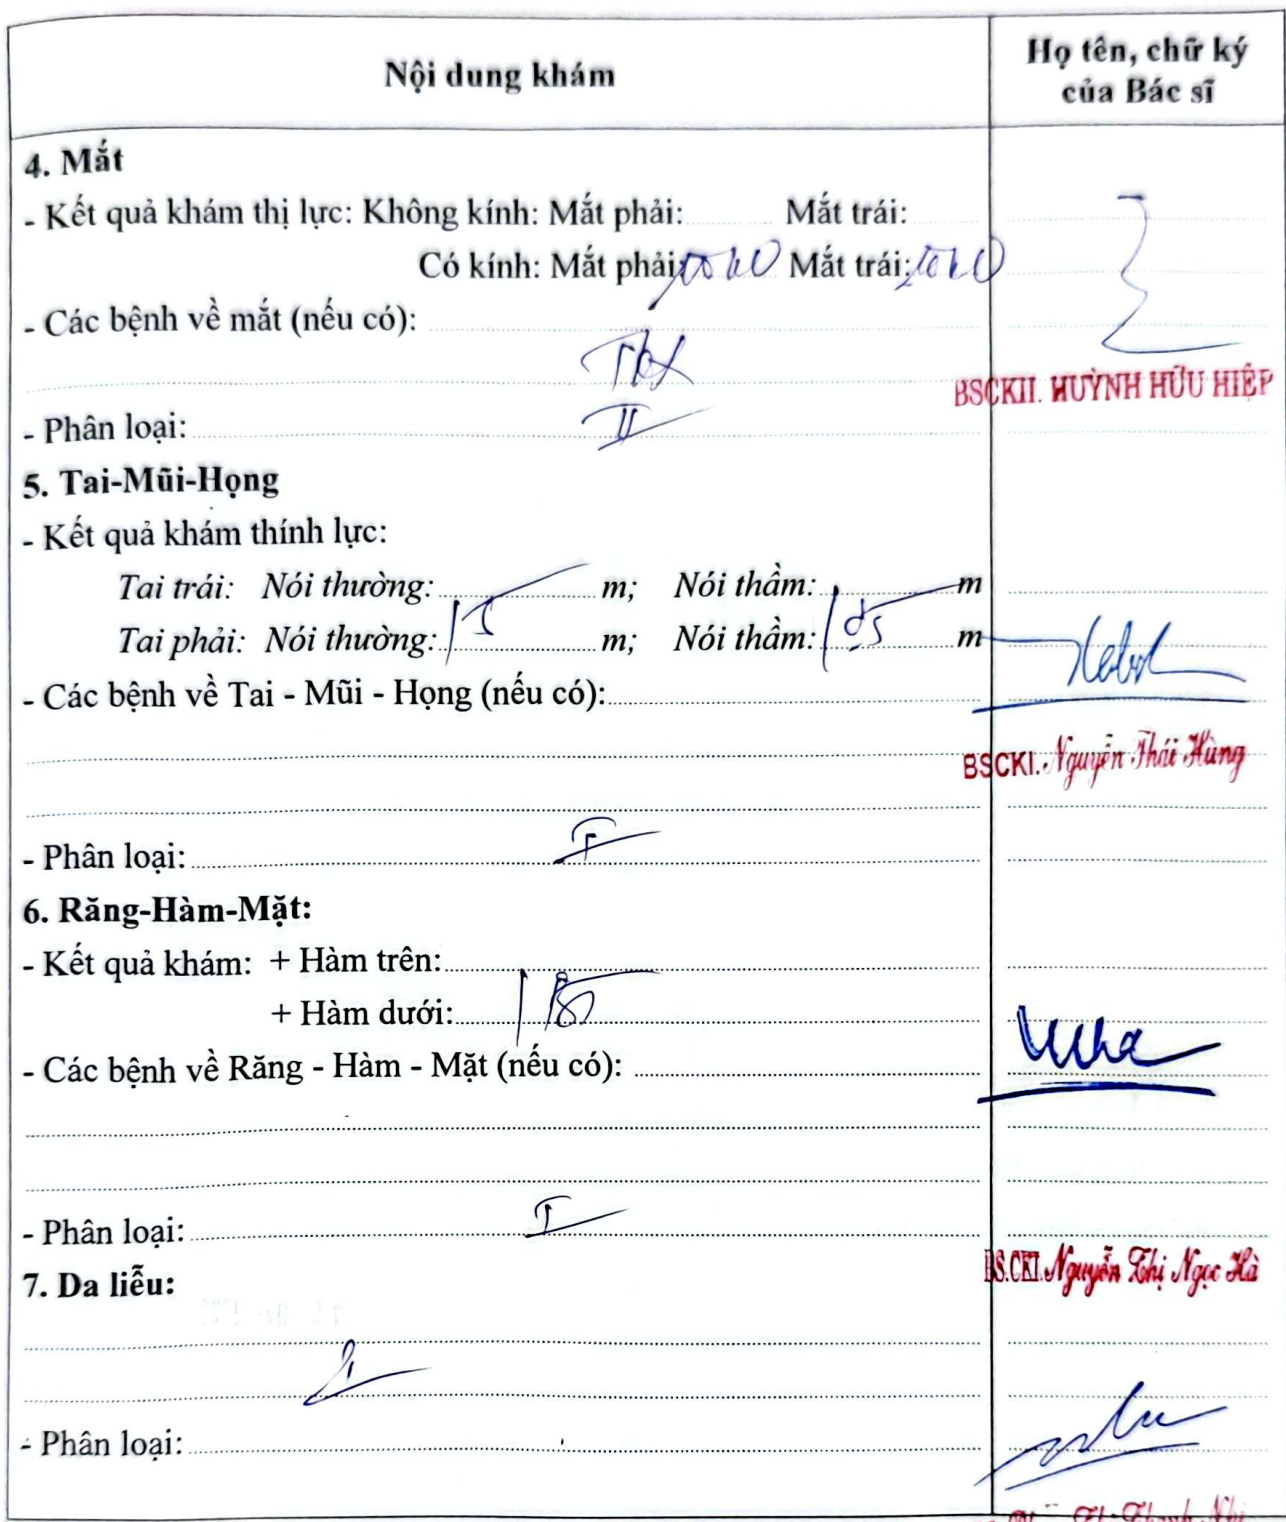 Nội dung khám
Họ tên, chữ ký
của Bác sĩ
4. Mắt
- Kết quả khám thị lực: Không kính: Mắt phải: Mắt trái:
Có kính: Mắt phải: Mắt trái:
- Các bệnh về mắt (nếu có):
BSCKII. HUỲNH HỮU HIỆP
- Phân loại: II
5. Tai-Mũi-Họng
- Kết quả khám thính lực:
Tai trái: Nói thường: m; Nói thầm: m
Tai phải: Nói thường: 5 m; Nói thầm: 0,5 m
- Các bệnh về Tai - Mũi - Họng (nếu có):
BSCKI. Nguyễn Thái Hùng
- Phân loại: I
6. Răng-Hàm-Mặt:
- Kết quả khám: + Hàm trên:
+ Hàm dưới:
- Các bệnh về Răng - Hàm - Mặt (nếu có):
- Phân loại: I
BS.CKI. Nguyễn Thị Ngọc Hà
7. Da liễu:
- Phân loại: